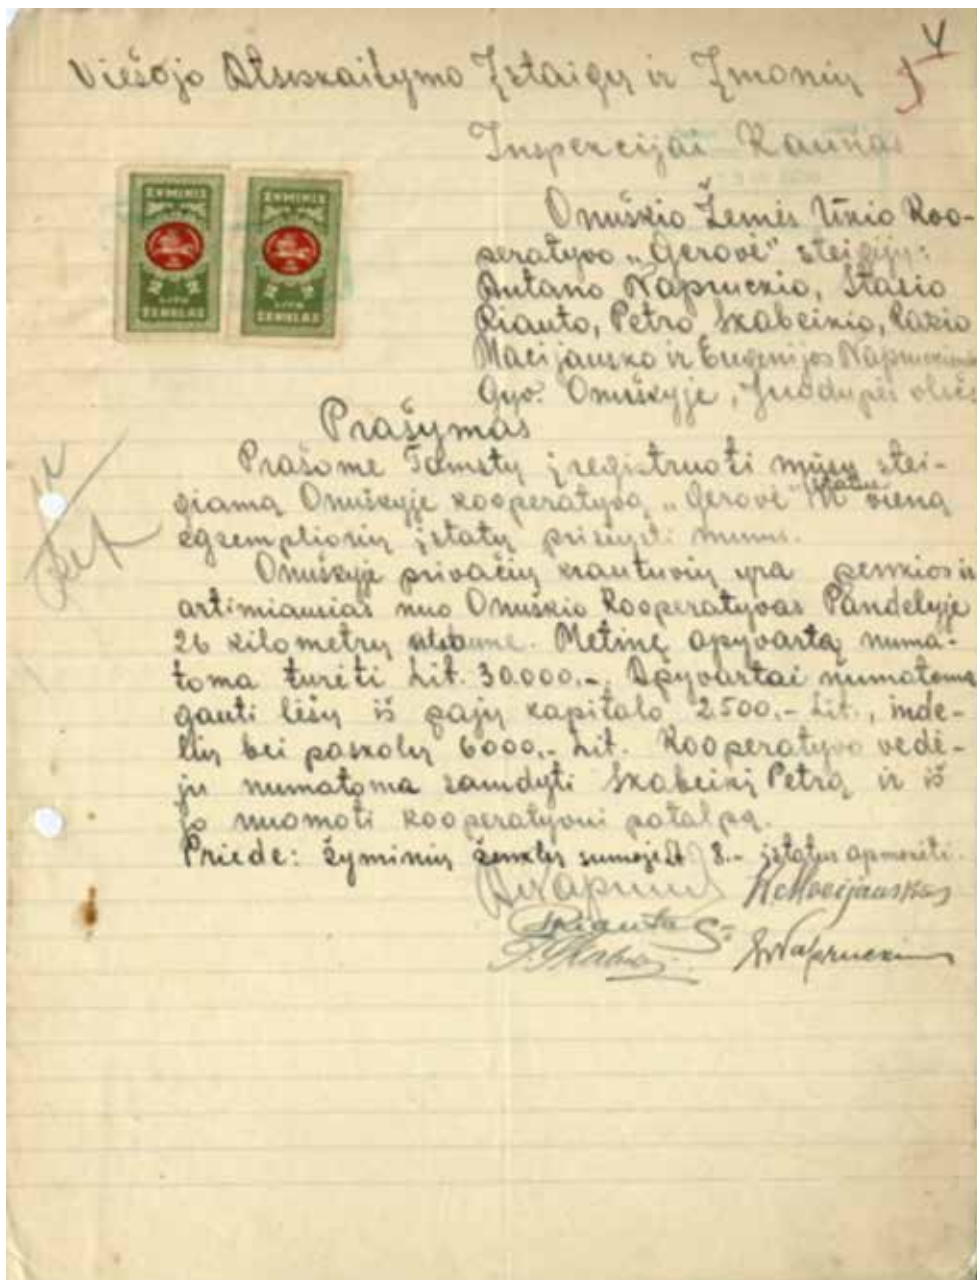 Viešojo Atsiskaitymo Įstaigų ir Įmonių
Inspekcijai Kaunas
ŽYMINIS
2 2
LITU
ŽENKLAS
ŽYMINIS
2 2
LITU
ŽENKLAS
Onuškio Žemės Ūkio Koo-
peratyvo „Gerovė" steigėjų:
Antano Napruckio, Stasio
Riauto, Petro Skabeikio, Kazio
Macijausko ir Eugenijos Napruckienės
Gyv. Onuškyje, Juodupės valsč.
Prašymas
Prašome Tamstų įregistruoti mūsų stei-
giamą Onuškyje kooperatyvą „Gerovė" įstatus vieną
egzempliorių įstatų prisiųsti mums.
Onuškyje privačių krautuvių yra penkios ir
artimiausias nuo Onuškio Kooperatyvas Pandėlyje
26 kilometrų. Metinę apyvartą numa-
toma turėti Lit. 30.000.-. Apyvartai numatoma
gauti lėšų iš pajų kapitalo 2500.- Lit., indė-
lių bei paskolų 6000.- Lit. Kooperatyvo vedė-
ju numatoma samdyti Skabeikį Petrą ir iš
jo nuomoti kooperatyvui patalpą.
Priede: žyminių ženklų sumoje Lt 8.- įstatus apmokėti.
K Macijauskas
Riauta S.